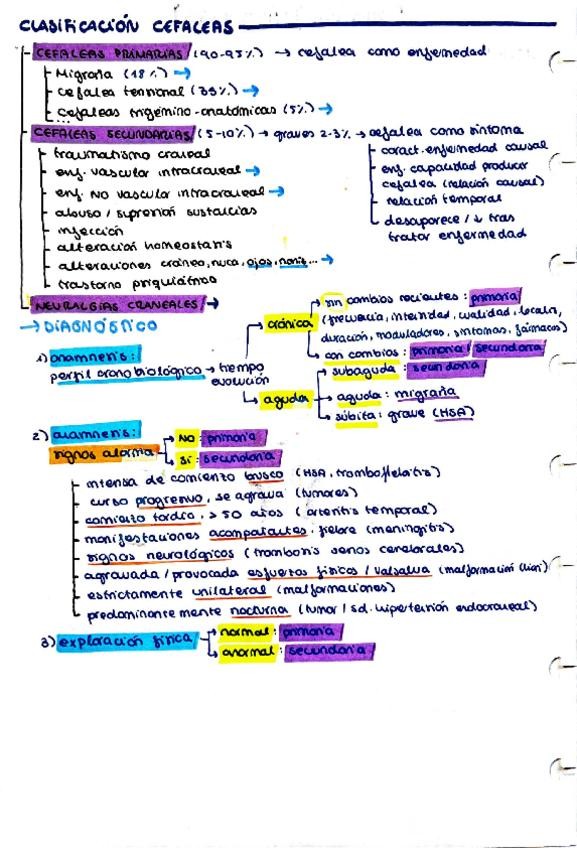 CLASIFICACIÓN CEFALEAS
CEFALEAS PRIMARIAS (90-95%) → cefalea como enfermedad
Migraña (18%) →
cefalea tensional (35%) →
cefaleas trigémino-anatómicas (5%) →
CEFALEAS SECUNDARIAS (5-10%) → graves 2-3% → cefalea como síntoma
traumatismo craneal
enf. vascular intracraneal →
enf. NO vascular intracraneal →
abuso / supresión sustancias
infección
alteración homeostasis
alteraciones cráneo, nuca, ojos, nariz... →
trastorno psiquiátrico
caract. enfermedad causal
enf. capacidad producir
cefalea (relación causal)
relación temporal
desaparece / ↓ tras
tratar enfermedad
NEURALGIAS CRANEALES →
→ DIAGNÓSTICO
1) anamnesis:
perfil cronobiológico → tiempo
evolución
crónica
sin cambios recientes: primaria
(frecuencia, intensidad, cualidad, localiz,
duración, moduladores, síntomas, fármacos)
con cambios: primaria / secundaria
aguda
subaguda: secundaria
aguda: migraña
súbita: grave (HSA)
2) anamnesis:
signos alarma
NO: primaria
SÍ: secundaria
intensa de comienzo brusco (HSA, tromboflebitis)
curso progresivo, se agrava (tumores)
comienzo tardío, > 50 años (arteritis temporal)
manifestaciones acompañantes, fiebre (meningitis)
signos neurológicos (trombosis senos cerebrales)
agravada / provocada esfuerzos físicos / valsalva (malformación
estrictamente unilateral (malformaciones)
predominantemente nocturna (tumor / sd. hipertensión endocraneal)
3) exploración física
normal: primaria
anormal: secundaria